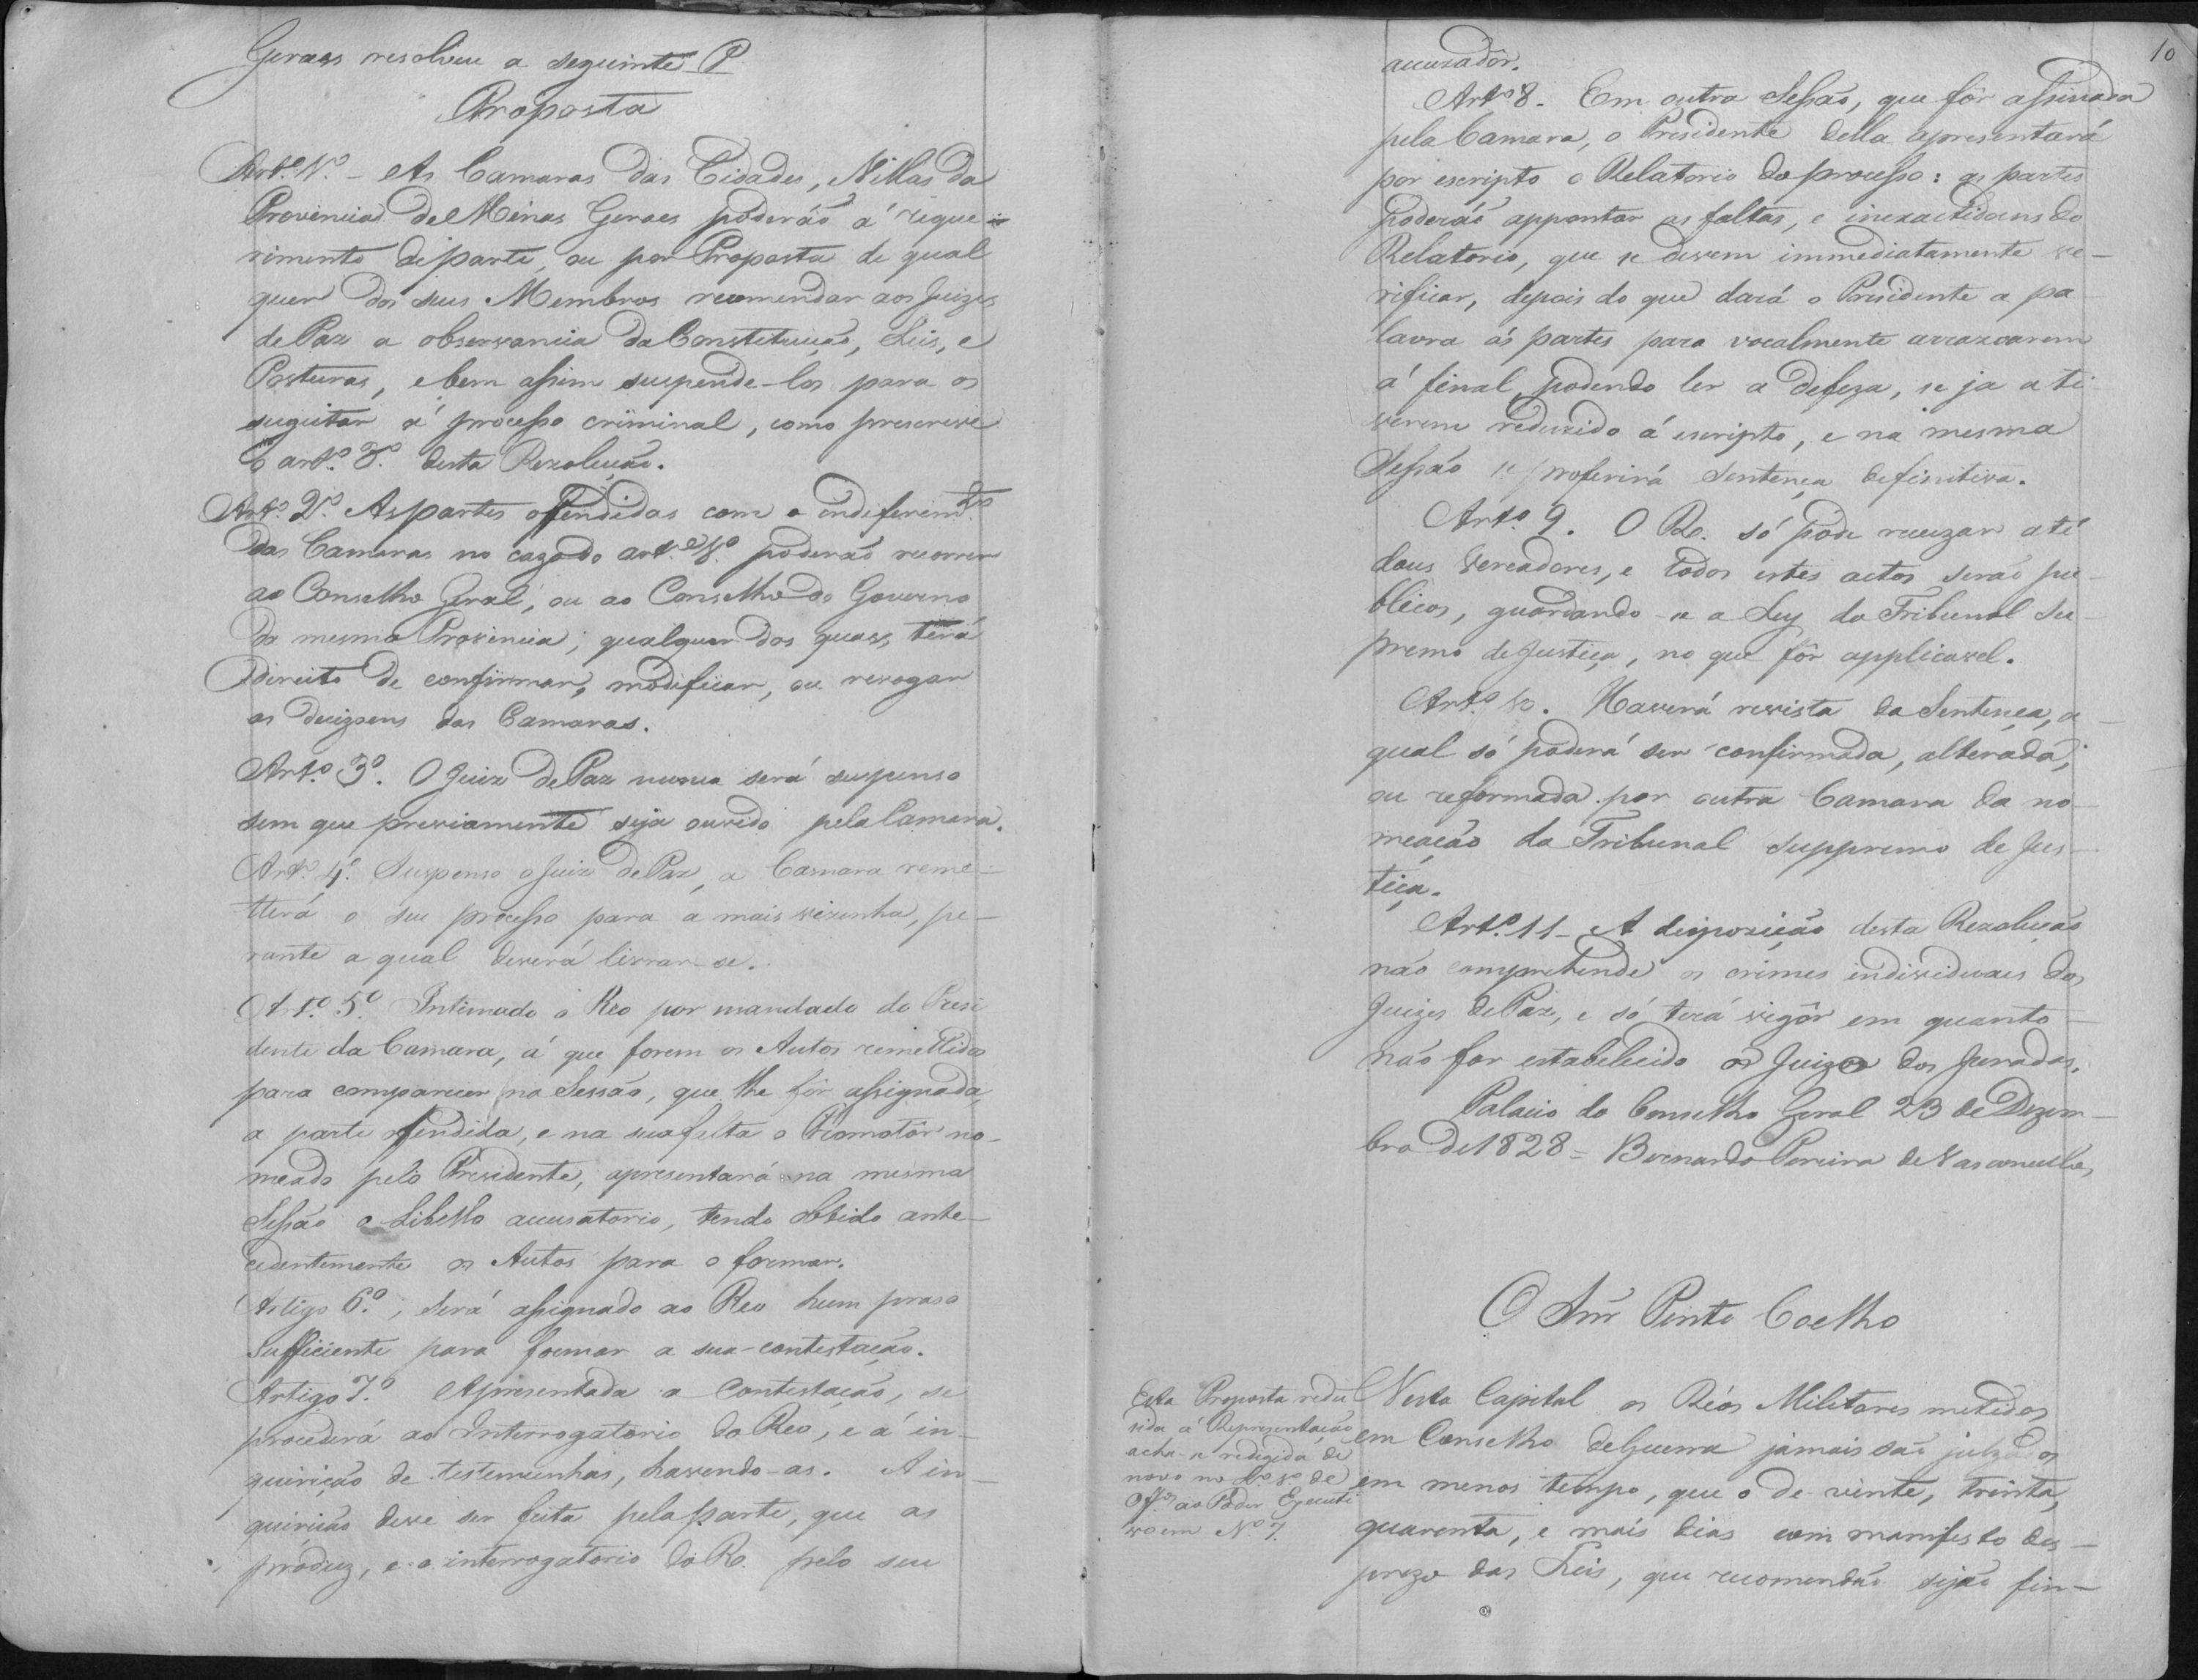 Geraes resolveu a seguinte P
Proposta
Art.º 1.º - As Camaras das Cidades, Villas da
Provincia de Minas Geraes poderáõ á reque=
rimento de parte, ou por Proposta de qual
quer dos seus Membros recomendar aos Juizes
de Paz a observancia da Constituição, Leis, e
Posturas, e bem assim suspende-los para os
sugeitar á processo criminal, como prescreve
o art.º 8.º desta Rezolução.
Art.º 2.º As partes offendidas com o indeferim.to
das Camaras no cazo do art.º 1.º poderáõ recorrer
ao Conselho Geral, ou ao Conselho do Governo
da mesma Provincia; qualquer dos quaes terá
direito de confirmar, modificar, ou revogar
as decizoens das Camaras.
Art.º 3.º O Juiz de Paz nunca será suspenso
sem que previamente seja ouvido pela Camara.
Art.º 4.º Suspenso o Juiz de Paz, a Camara reme-
tterá o seu processo para a mais vizinha, pe-
rante a qual deverá livrar-se.
Art.º 5.º Intimado o Reo por mandado do Presi
dente da Camara, á que forem os Autos remettidos
para comparecer na Sessão, que lhe fôr assignada,
a parte offendida, e na sua falta o Promotôr no-
meado pelo Presidente, apresentará na mesma
Sessão o Libello accusatorio, tendo obtido ante-
cedentemente os Autos para o formar.
Artigo 6.º, Será assignado ao Reo hum praso
sufficiente para formar a sua contestação.
Artigo 7.º Apresentada a Contestação, se
procederá ao Interrogatorio do Reo, e á in-
quirição de testemunhas, havendo-as. A in-
quirição deve ser feita pela parte, que as
produz, e o interrogatorio do R. pelo seu
10
accuzadôr.
Art.º 8. Em outra Sessão, que fôr assinada
pela Camara, o Presidente della apresentará
por escripto o Relatorio do processo: as partes
poderáõ appontar as faltas, e inexactidoens do
Relatorio, que se devem immediatamente ve-
rificar, depois do que dará o Presidente a pa
lavra ás partes para vocalmente arrazoarem
á final, podendo ler a defeza, se ja a ti
verem reduzido á escripto, e na mesma
Sessão se proferirá Sentença definitiva.
Art.º 9. O R. só póde recuzar até
dous Vereadores, e todos estes actos serão pu-
blicos, guardando-se a Ley do Tribunal Su-
premo de Justiça, no que fôr applicavel.
Art.º 10. Haverá revista da Sentença, a
qual só poderá ser confirmada, alterada,
ou reformada por outra Camara da no-
meação do Tribunal Suppremo de Jus-
tiça.
Art.º 11- A dispozição desta Rezolução
não comprehende os crimes individuaes dos
Juizes de Paz, e só terá vigôr em quanto
não for estabelecido o Juizo dos Jurados.
Palacio do Conselho Geral 23 de Dezem-
bro de 1828 = Bernardo Pereira de Vasconcellos
O Snr Pinto Coelho
Esta Proposta redu
sida á Representação
acha-se redigida de
novo no L.º 1.º de
Off.os ao Poder Executi
vo em N.º 7.
Nesta Capital os Réos Militares metidos
em Conselho de Guerra jamais são julgados
em menos tempo, que o de vinte, trinta,
quarenta, e mais dias com manifesto des-
prezo das Leis, que recomendão sejão fin-